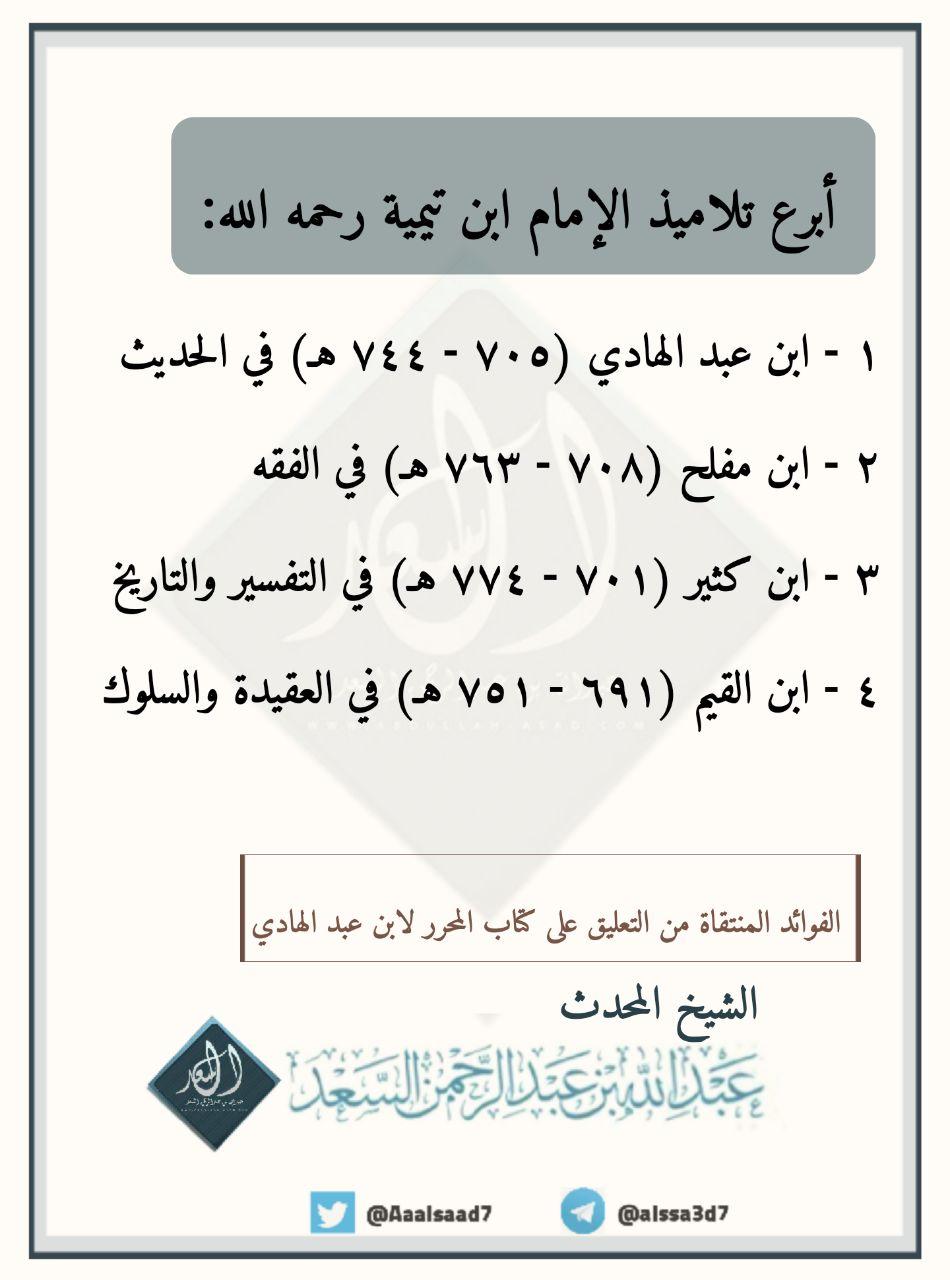 أبرع تلاميذ الإمام ابن تيمية رحمه الله:
١ - ابن عبد الهادي (٧٠٥ - ٧٤٤ هـ) في الحديث
٢ - ابن مفلح (٧٠٨ - ٧٦٣ هـ) في الفقه
٣ - ابن كثير (٧٠١ - ٧٧٤ هـ) في التفسير والتاريخ
٤ - ابن القيم (٦٩١ - ٧٥١ هـ) في العقيدة والسلوك
الفوائد المنتقاة من التعليق على كتاب المحرر لابن عبد الهادي
الشيخ المحدث
عبد الله بن عبد الرحمن السعد
السعد
@Aaalsaad7 @alssa3d7